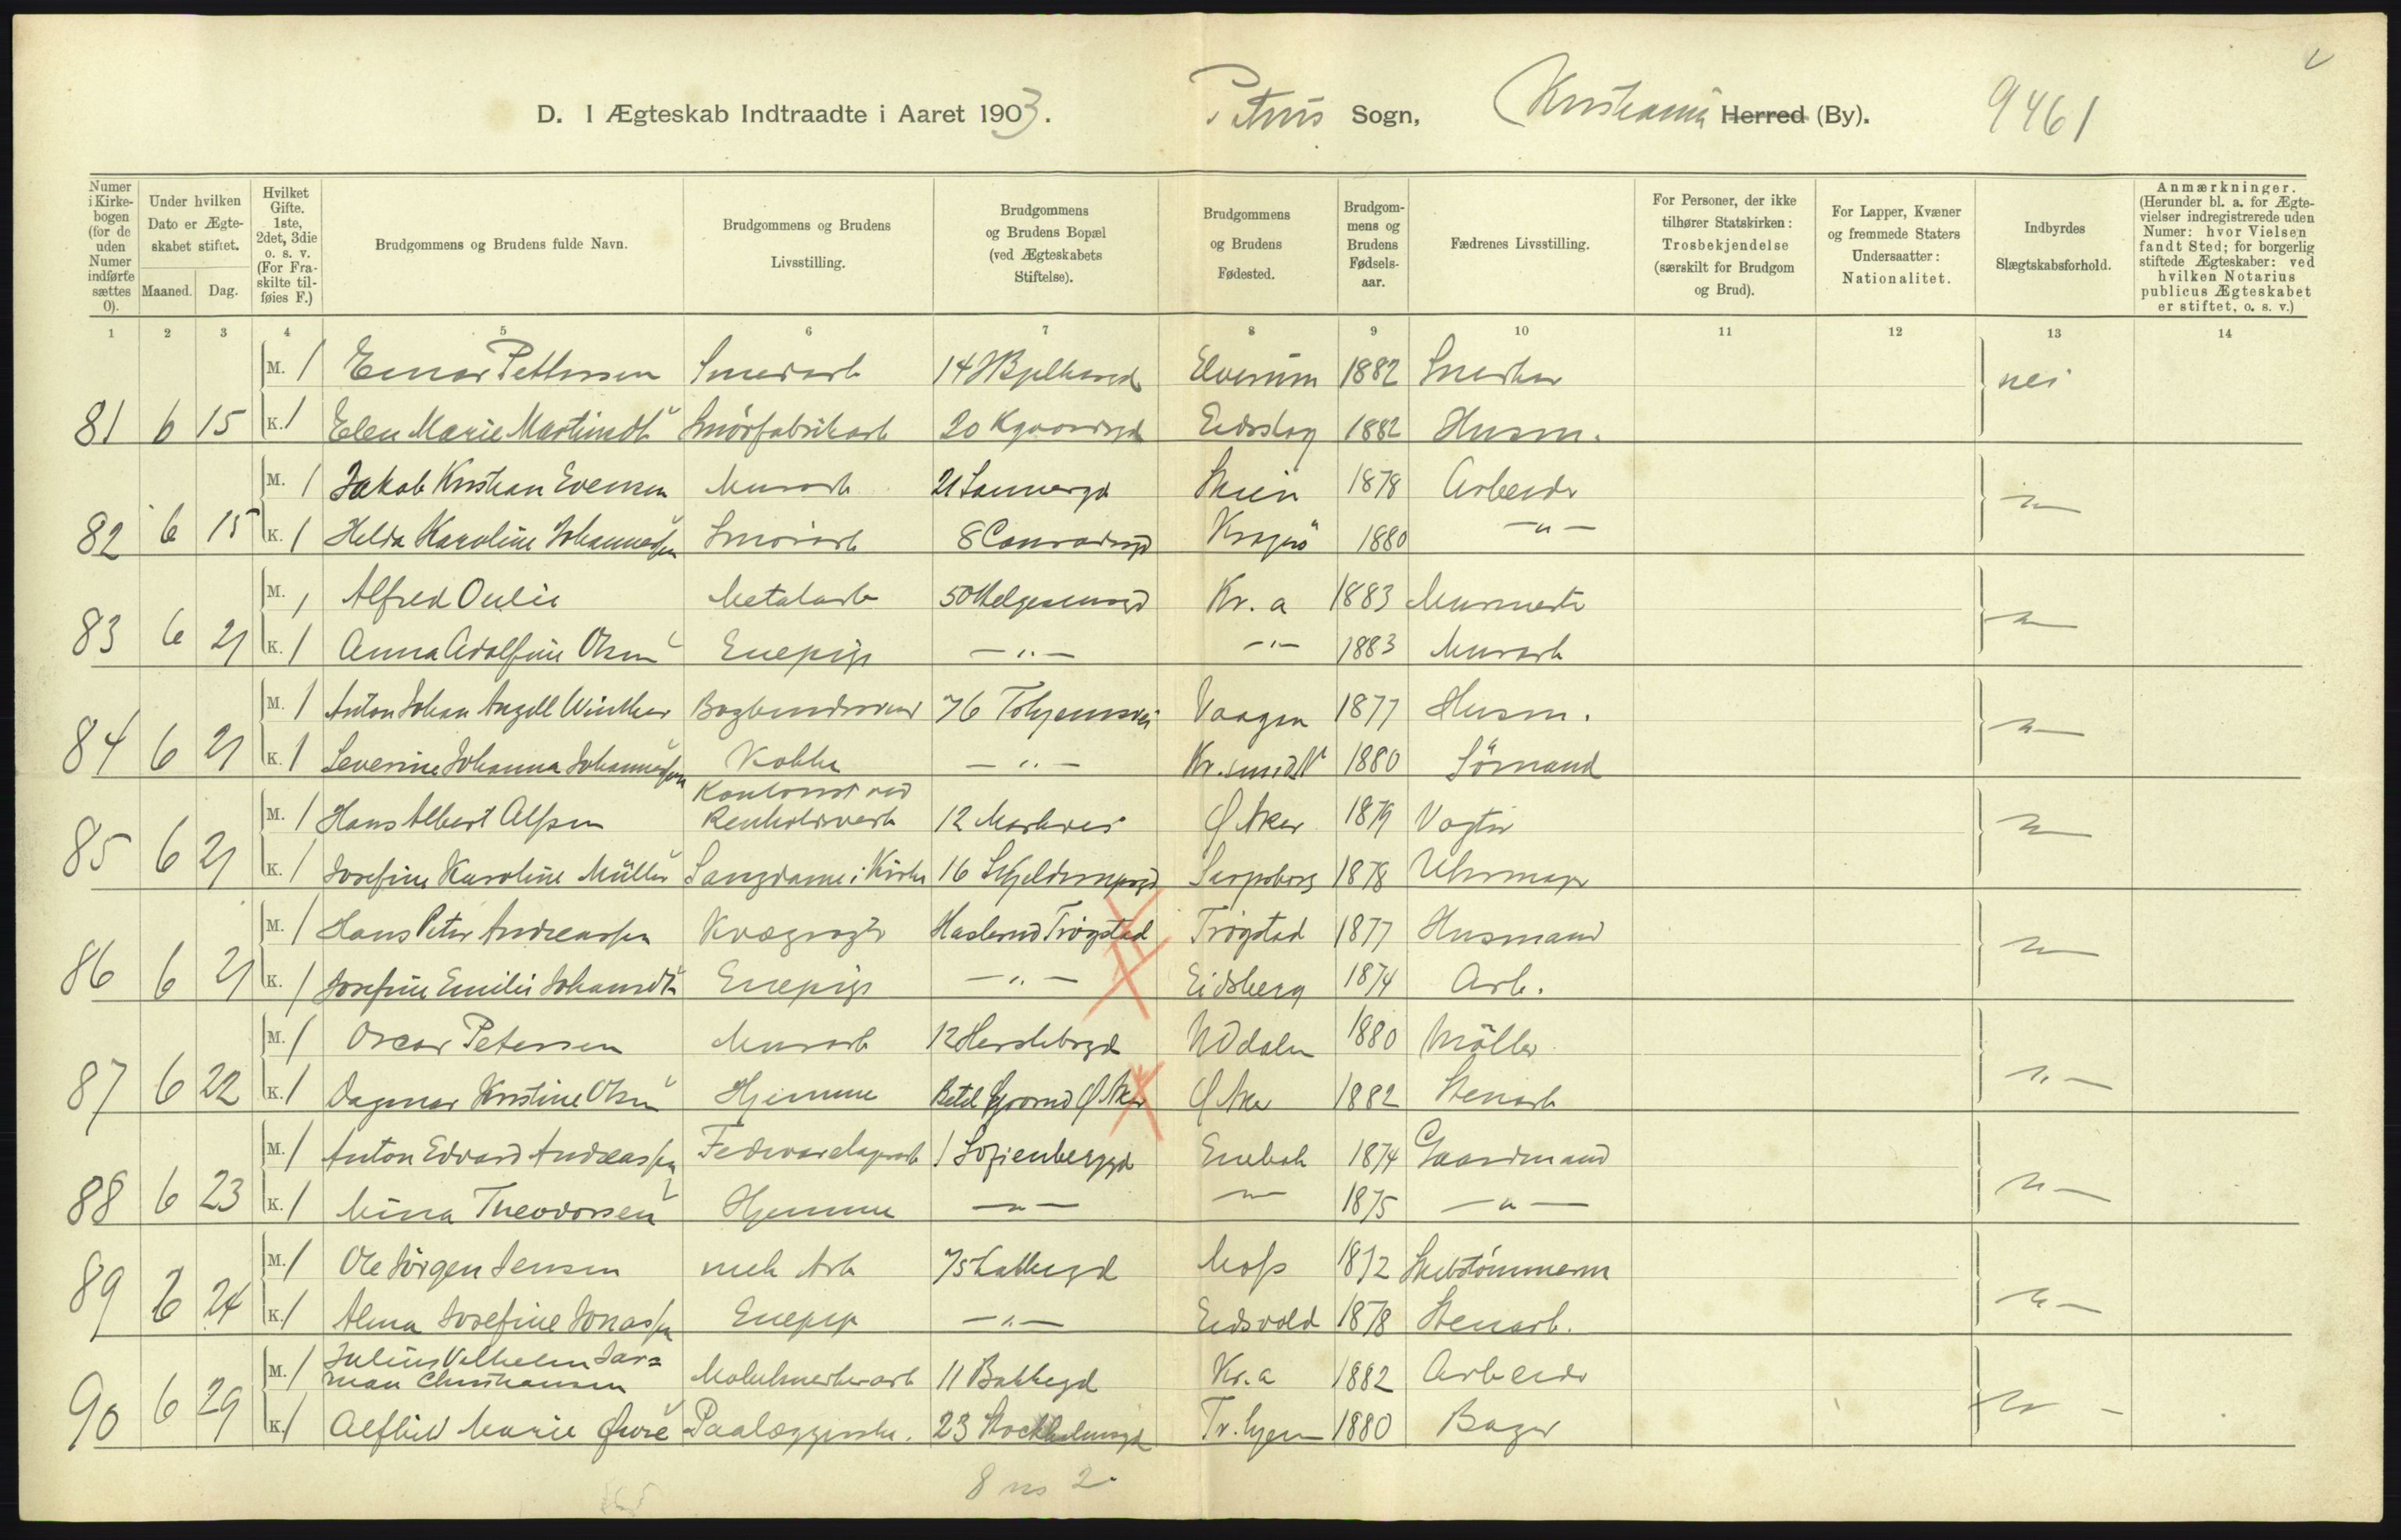 D. I Ægteskab Indtraadte i Aaret 1903. Petrus Sogn, Kristiania Herred (By). 9461
Numer i Kirkebogen (for de uden Numer indførte sættes 0).
Under hvilken Dato er Ægteskabet stiftet.
Maaned. Dag.
Hvilket Gifte. 1ste, 2det, 3die o. s. v. (For Fraskilte tilføies F.)
Brudgommens og Brudens fulde Navn.
Brudgommens og Brudens Livsstilling.
Brudgommens og Brudens Bopæl (ved Ægteskabets Stiftelse).
Brudgommens og Brudens Fødested.
Brudgommens og Brudens Fødselsaar.
Fædrenes Livsstilling.
For Personer, der ikke tilhører Statskirken: Trosbekjendelse (særskilt for Brudgom og Brud).
For Lapper, Kvæner og fremmede Staters Undersaatter: Nationalitet.
Indbyrdes Slægtskabsforhold.
Anmærkninger. (Herunder bl. a. for Ægtevielser indregistrerede uden Numer: hvor Vielsen fandt Sted; for borgerlig stiftede Ægteskaber: ved hvilken Notarius publicus Ægteskabet er stiftet, o. s. v.)
1 2 3 4 5 6 7 8 9 10 11 12 13 14
M. 1 Einar Pettersen Smedarb Elverum 1882 Snedker nei
81 6 15 K. 1 Elen Marie Martinsdt Smörfabrikarb 20 Eidskog 1882 Husm.
M. 1 Jakob Kristian Evensen Murarb 21 Sannergd Skien 1878 Arbeider
82 6 15 K. 1 Helda Karoline Johannessen Smörarb 8 Conradsgd Kragerö 1880 -"-
M. 1 Alfred Oulie Metalarb 50 Helgesensgd Kr.a 1883 Murmester
83 6 21 K. 1 Anna Adolfine Olsen Enepige -"- -"- 1883 Murarb
M. 1 Anton Johan Angell Winther Bogbindersvend 76 Vaagen 1877 Husm.
84 6 21 K. 1 Severine Johanna Johannessen Kokke -"- Kr.sund N 1880 Sömand
M. 1 Hans Albert Alfsen Kontorist ved Renholdsverk 12 Markvei Ø Aker 1879 Vogter
85 6 21 K. 1 Josefine Karoline Müller Sangdame i Kirke 16 Schjelderupsgd Sarpsborg 1878 Uhrmager
M. 1 Hans Peter Andreassen Kvægrøgter Haslerud Trögstad Trögstad 1877 Husmand
86 6 21 K. 1 Josefine Emilie Johansdt Enepige -"- Eidsberg 1874 Arb.
M. 1 Oscar Petersen Murarb 12 Herslebsgd N Odalen 1880 Möller
87 6 22 K. 1 Dagmar Kristine Olsen Hjemme Betel Ø Aker Ø Aker 1882 Stenarb
M. 1 Anton Edvard Andreassen 1 Sofienberggd Enebak 1874 Gaardmand
88 6 23 K. 1 Mina Theodorsen Hjemme -"- -"- 1875 -"-
M. 1 Ole Jörgen Jensen mek Arb Moss 1872 Skibstömmerm
89 6 24 K. 1 Alma Josefine Jonassen Enepig -"- Eidsvold 1878 Stenarb.
M. 1 Julius Vilhelm Jarman Christiansen 11 Bakkegd Kr.a 1882 Arbeider
90 6 29 K. 1 Alfhild Marie Paalæggerske. 23 Stockholmsgd 1880 Bager
8 2